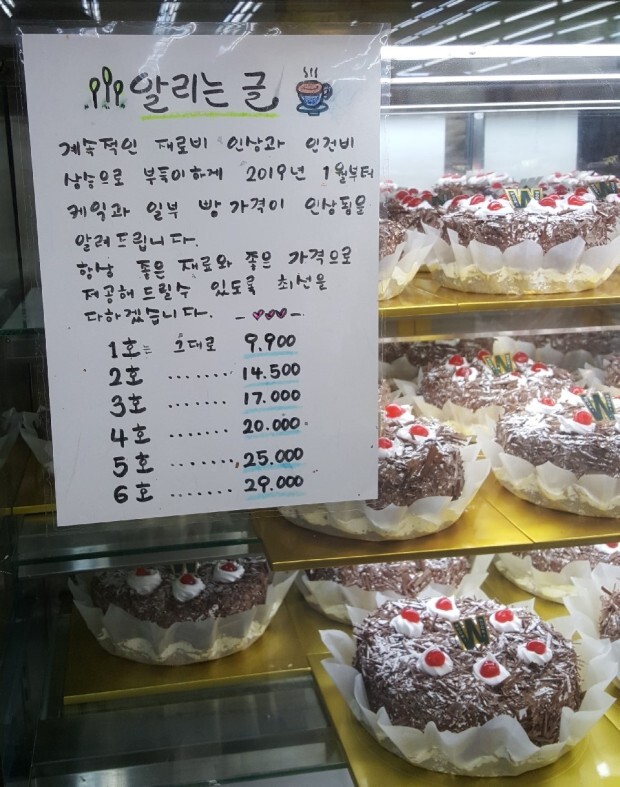 알리는 글
계속적인 재료비 인상과 인건비
상승으로 부득이하게 2019년 1월부터
케익과 일부 빵가격이 인상됨을
알려드립니다.
항상 좋은 재료와 좋은 가격으로
제공해 드릴수 있도록 최선을
다하겠습니다.
1호는 그대로 9.900
2호 ....... 14.500
3호 ....... 17.000
4호 ....... 20.000
5호 ....... 25.000
6호 ....... 29.000
W
W
W
W
W